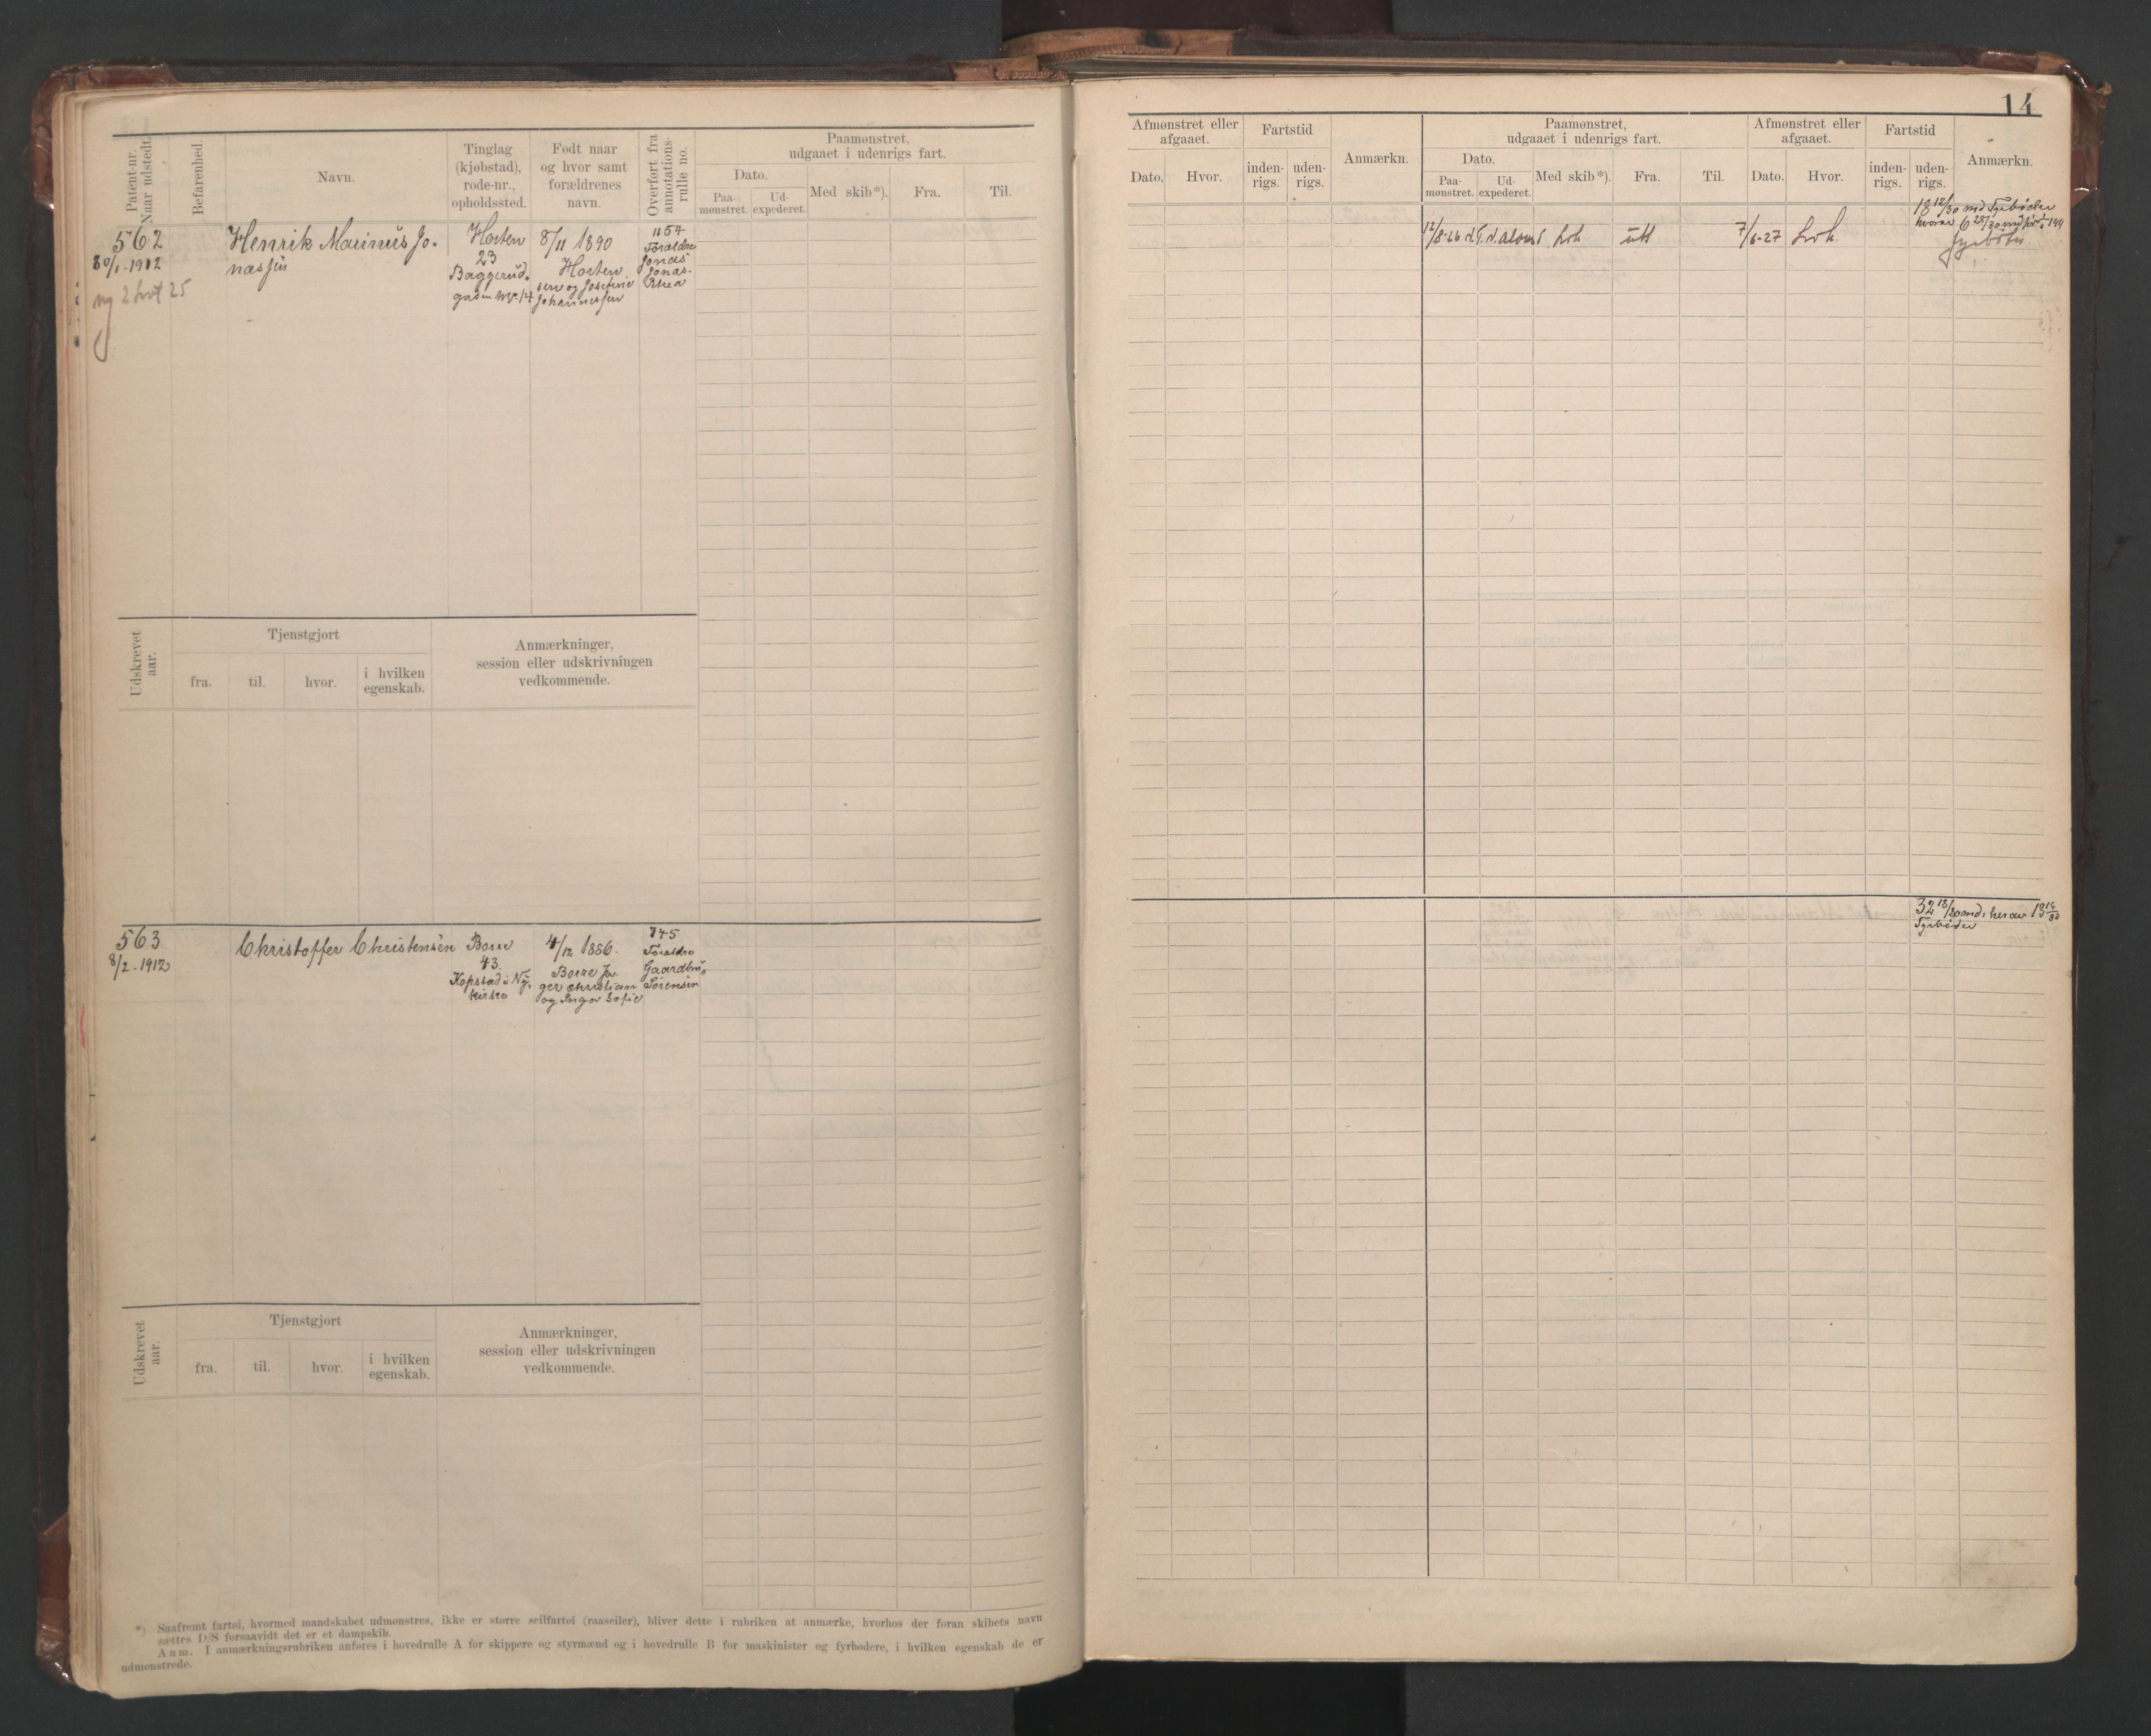 14
Patent-nr.
Naar udstedt.
Befarenhed.
Navn.
Tinglag
(kjøbstad),
rode-nr.,
opholdssted.
Født naar
og hvor samt
forældrenes
navn.
Overført fra
annotations-
rulle no.
Paamønstret,
udgaaet i udenrigs fart.
Dato.
Paa-
mønstret.
Ud-
expederet.
Med skib*).
Fra.
Til.
562
30/1-1912
ny 2
25
Henrik Marinus Jo-
nassen
Horten
23
Baggerud.
gaden No. 14
8/11 1890
Horten
sen og Josefine
Johannesen
1154
Forældre
Jonas
Jonas-
Udskrevet
aar.
Tjenstgjort
fra.
til.
hvor.
i hvilken
egenskab.
Anmærkninger,
session eller udskrivningen
vedkommende.
563
8/2-1912
Christoffer Christensen
Borre
43.
Kopstad i Ny-
kirke
4/12 1886.
Borre
ger Christian
og Inger Sofie
745
Forældre
Gaardbru-
Sørensen
Udskrevet
aar.
Tjenstgjort
fra.
til.
hvor.
i hvilken
egenskab.
Anmærkninger,
session eller udskrivningen
vedkommende.
*) Saafremt fartøi, hvormed mandskabet udmønstres, ikke er større seilfartøi (raaseiler), bliver dette i rubriken at anmærke, hvorhos der foran skibets navn
sættes D/S forsaavidt det er et dampskib.
Anm. I anmærkningsrubriken anføres i hovedrulle A for skippere og styrmænd og i hovedrulle B for maskinister og fyrbødere, i hvilken egenskab de er
udmønstrede.
Afmønstret eller
afgaaet.
Dato.
Hvor.
Fartstid
inden-
rigs.
uden-
rigs.
Anmærkn.
Paamønstret,
udgaaet i udenrigs fart.
Dato.
Paa-
mønstret.
Ud-
expederet.
Med skib*).
Fra.
Til.
Afmønstret eller
afgaaet.
Dato.
Hvor.
Fartstid
inden-
rigs.
uden-
rigs.
Anmærkn.
18 12/30 md Fyrbøder
hvorav 6 28/30 md før
12/8-26
Lvk
utt
7/6-27 Lvk.
Fyrbøter
32 13/30 md, herav 13 14/30
Fyrbøder